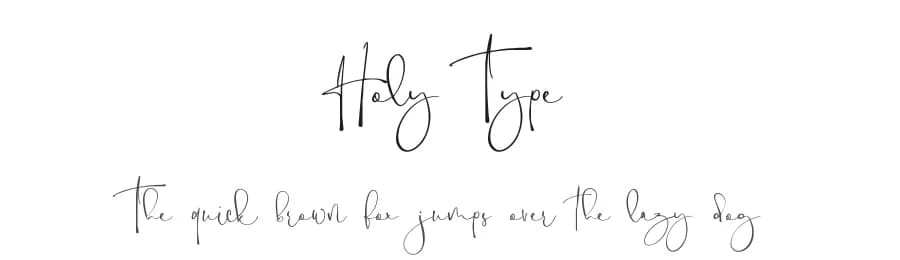 Holy Type
The quick brown fox jumps over the lazy dog